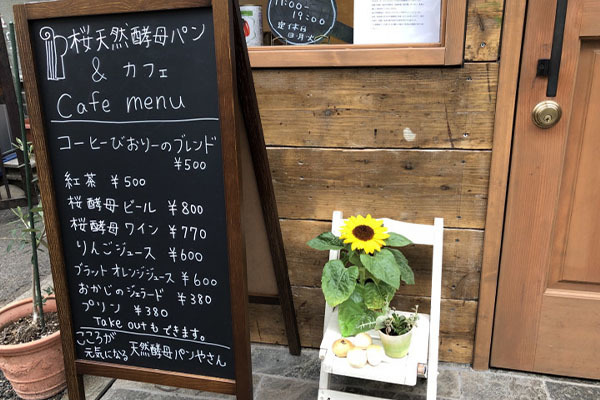 桜天然酵母パン
& カフェ
Cafe menu
コーヒーびおりーのブレンド
¥500
紅茶 ¥500
桜酵母ビール ¥800
桜酵母ワイン ¥770
りんごジュース ¥600
ブラットオレンジジュース ¥600
おかじのジェラード ¥380
プリン ¥380
Take outもできます。
こころが
元気になる 天然酵母パンやさん
11:00~
19:00
定休日
日月火